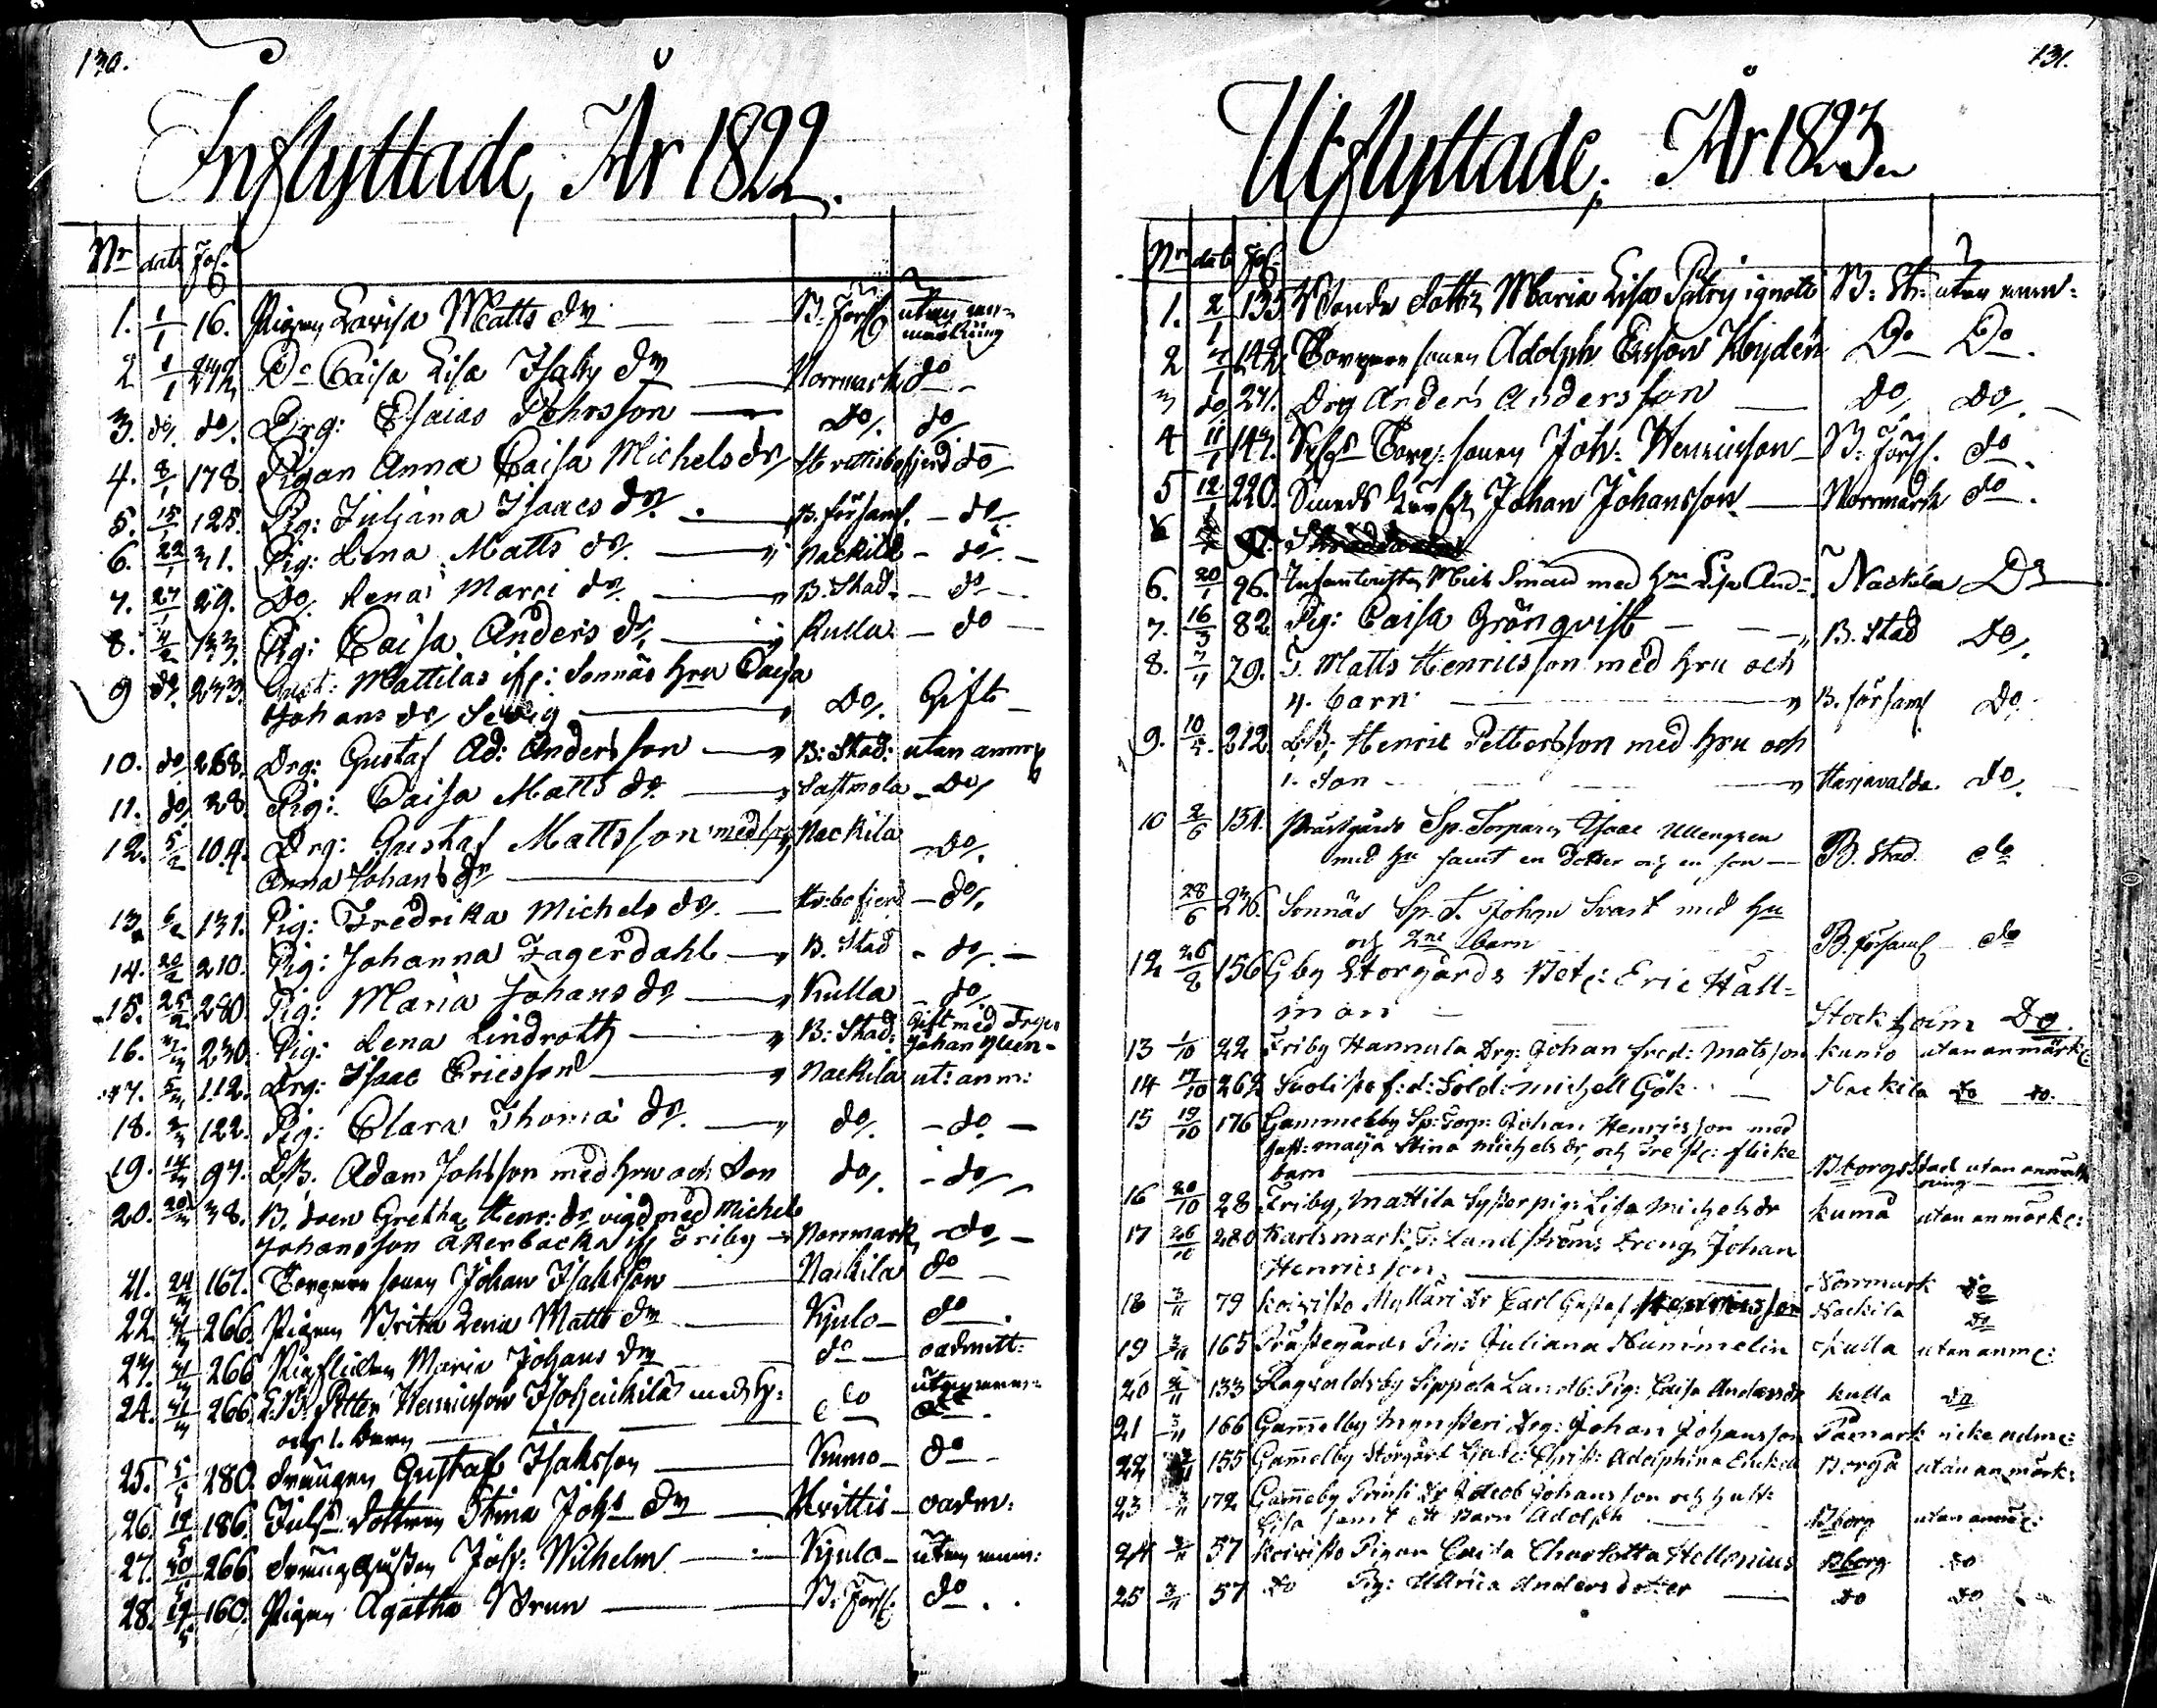 130.
Inflyttade, År 1822.
Nr dat. Fol.
1. 1/1 16. Pigan Lovisa Matts dr B: Förs: utan an-
märkning
2 1/1 272 Do Caisa Lisa Isaks dr Norrmark do
3. do. do. Drg: Esaias Pehrsson do. do
4. 8/1 178. Pigan Anna Caisa Michels dr Hvittisbofjerd do
5. 15/1 125. Pig: Juliana Isaacs dr. B. församl. - do.
6. 22/1 31. Pig: Lena Matts dr. Nackila - do. -
7. 27/1 29. Do. Lena Marci dr. B. Stad. - do -
8. 4/2 133. Pig: Caisa Anders dr. Kulla - do -
9 do. 233. Enk: Mattilas Sonnäs hru Caisa
Johans dr Do. Gift -
10. do 268. Drg: Gustaf Ad: Andersson B: Stad: utan anm
11. do. 38. Pig: Caisa Matts dr. Sastmola - Do.
12. 5/2 104. Drg: Gustaf Mattsson med hru Nackila
Anna Johans dr - do.
13. 6/2 131. Pig: Fredrika Michels dr. Hv:bofjerd - do.
14. 20/2 210. Pig: Johanna Fagerdahl B. Stad - do. -
15. 25/2 280. Pig: Maria Johans dr Kulla - do.
16. 230. Pig: Lena Lindroth B: Stad: Gift med
Johan
17. 5/3 112. Drg: Isaac Ericsson Nackila ut: anm:
18. 122. Pig: Clara Thomæ dr. do. - do -
19. 14/3 97. L.B. Adam Johsson med hru och Son do. - do
20. 20/3 38. B. doen Gretha Henr: dr vigd med Michel
Johansson Åkerbacka Friby Norrmark - do -
21. 24/3 167. Torpare sonen Johan Isaksson Nackila do -
22. 266. Pigan Brita Lena Matts dr Kjulo - do.
23. 266 Pigflickan Maria Johans dr do oadmitt:
24. 266. L.B. Petter Henricsson med h: do utan anm:
och 1. barn
25. 5/5 280. Drängen Gustaf Isaksson Kumo - do -
26. 12/5 186. dottren Stina Johs dr Hvittis - oadm:
27. 266. Johs: Wilhelm Kjulo - utan anm:
28. 19/5 160. Pigan Agatha Brun B: Förs: do. .
131.
Utflyttade, År 1823.
Nr dat Fol.
1. 2/1 135 dotter Maria Lisa Patris ignoti B: St: utan anm:
2 7/1 142. Torpare sonen Adolph Ersson Hydén Do Do.
3 do 271. Drg Anders Andersson Do. Do. -
4 11/1 147. Torp: sonen Joh: Henricsson B: förs. do.
5 12/1 220. Smeds Johan Johansson Norrmark do.
6
6. 20/1 96. Mich Smäd med hru Lisa And: Nackila Do
7. 16/3 82. Pig: Caisa Grönqvist B. Stad Do.
8. 7/4 79. T. Matts Henricsson med hru och
4. barn B. församl Do.
9. 10/5. 212. L.B. Henric Pettersson med hru och
1. Son Harjavalda do.
10 2/6 154. Prästgårds Sp. Torparen Isaac Ullengren
med hu samt en dotter och en son B. Stad do
28/6 236. Sonnäs Sp. T. Johan Svart med hu
och 2ne barn B. församl do
12 26/8 156 Gby Storgårds Bet: Eric Häll=
man Stockholm Do.
13 1/10 22 Friby Hannula Drg: Johan Fred: Matsson Kumo utan anmärk:
14 17/10 262 Suolisto f: d: Sold: Michell Gök. Nackila do do.
15 19/10 176 Gammelby Sp: Torp: Johan Henricsson med
hust: Maija Stina Michels dr, och Tre st: flicke
barn Bborgs Stad utan anmärk
ning
16 20/10 28 Friby, Mattila Sytjorpig: Lisa Michels dr Kumå utan anmärk:
17 26/10 280 Karlsmark T: Landströms Dreng Johan
Henricsson Norrmark do
18 3/11 79 Koivisto Myllari Dr Carl Gustaf Henricsson Nackila do
19 3/11 165 Prästegårds Pin: Juliana Hummelin Kulla utan anm:
20 2/11 133 Ragvaldsby Sippola Landb: Pig: Caisa Andersdr Kulla do
21 3/11 166 Gammelby Mynsteri Drg: Johan Johansson Påmark icke adm:
22 155 Gammelby Storgård Christ: Adolphina Enckell Borgå utan anmärk:
23 3/11 172 Gammeby Prinsi Dr Jacob Johansson och hust:
Lisa samt ett Barn Adolph Bborg utan anm:
24 3/11 57 Koivisto Pigan Caisa Charlotta Hellenius Bborg do
25 3/11 57 do Pig: Ullrica Anders dotter do do